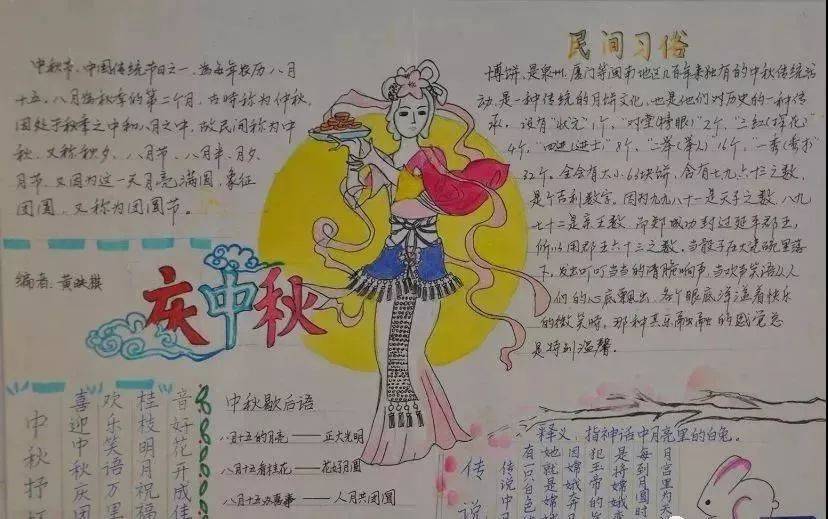 中秋节、中国传统节日之一、为每年农历八月
十五。八月为秋季的第二个月，古时称为仲秋，
因处于秋季之中和八月之中，故民间称为中
秋、又称秋夕、八月节、八月半、月夕、
月节、又因为这一天月亮满圆，象征
团圆、又称为团圆节。
编者：黄映祺
庆中秋
民间习俗
博饼、是泉州、厦门等闽南地区几百年来独有的中秋传统活
动，是一种传统的月饼文化，也是他们对历史的一种传
承。设有"状元"1个，"对堂(榜眼)"2个，"三红(探花)
4个，"四进(进士)"8个，"二举(举人)16个，一秀(秀才)
32个。全会有大小63块饼，含有七九六十三之数，
是个吉利数字。因为九九八十一是天子之数，八九
七十三是亲王数、而郑成功封过延平郡王，
所以用郡王六十三之数。当骰子在大瓷碗里落
下，发出叮叮当当的清脆响声，当欢声笑语从人
们的心底飘出，各个眼底洋溢着快乐
的微笑时，那种其乐融融的感觉总
是特别温馨.
中秋抒
喜迎中秋庆团
欢乐笑语万里
桂枝明月祝福
音好花开成佳
中秋歇后语
八月十五的月亮——正大光明
八月十五看桂花——花好月圆
八月十五办喜事——人月共团圆
传说
释义：指神话中月亮里的白兔。
月宫里为天
每到月圆时
是将嫦娥
因嫦娥奔月
犯玉帝的
她就是嫦
有一只白色
传说中月